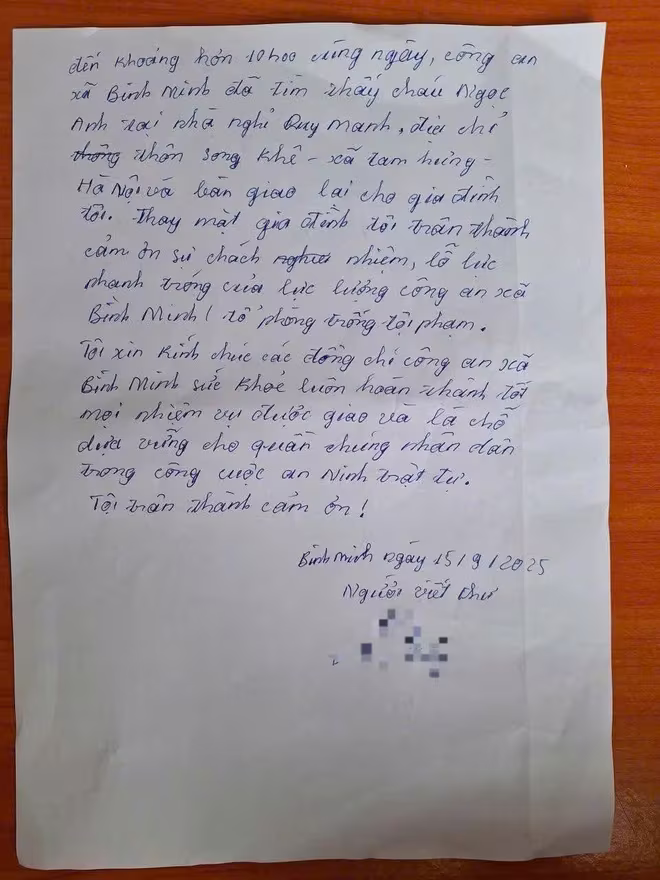 đến khoảng hơn 10h00 cùng ngày, công an
xã Bình Minh đã tìm thấy cháu Ngọc
Anh tại nhà nghỉ Quy Mạnh, địa chỉ
thông thôn song Khê - xã tam hưng -
Hà Nội và bàn giao lại cho gia đình
tôi. Thay mặt gia đình tôi trân thành
cảm ơn sự chách nghiệ nhiệm, lỗ lực
nhanh tróng của lực lượng công an xã
Bình Minh / tổ phòng trống tội phạm.
Tôi xin kính chúc các đồng chí công an xã
Bình Minh sức khoẻ luôn hoàn thành tốt
mọi nhiệm vụ được giao và là chỗ
dựa vững cho quần chúng nhân dân
trong công cuộc an Ninh trật tự.
Tôi trân thành cảm ơn!
Bình minh ngày 15/9/2025
Người viết thư